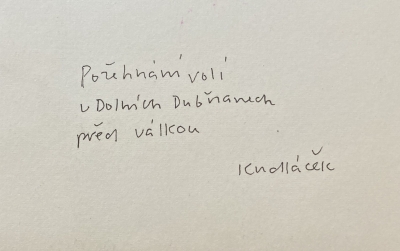 Požehnání volí
v Dolních Dubňanech
před válkou
Kudláček